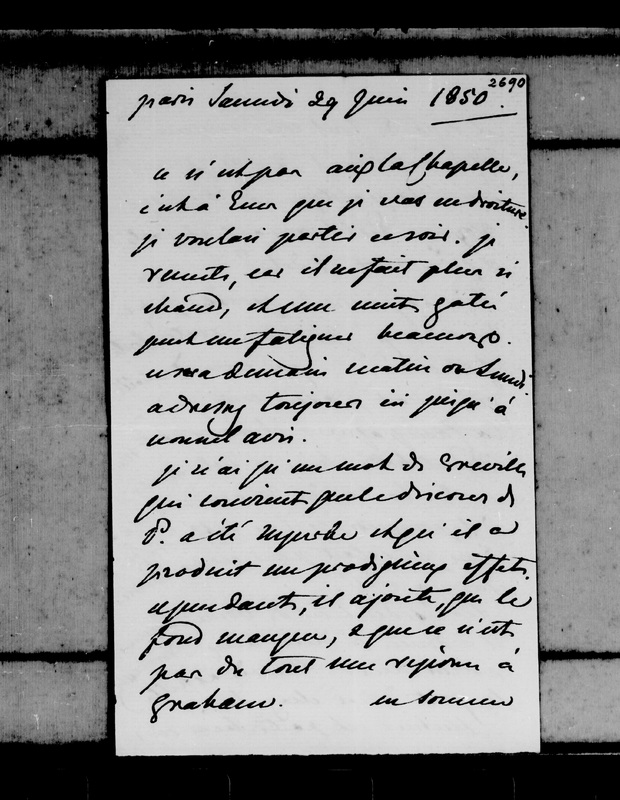 2690
paris Samedi 29 Juin 1850.
ce n'est pas aix la Chapelle,
c'est à Ems que je vais en droiture.
je voulais partir ce soir. je
remets, car il ne fait plus si
chaud, et une nuit gatée
peut me fatiguer beaucoup.
ce sera demain matin ou Lundi
adressez toujours ici jusqu'à
nouvel avis.
je n'ai qu'un mot de Greville
qui convient que le discours de
P. a été superbe et qu'il a
produit un prodigieux effet.
cependant, il ajoute, que le
fond manque, & que ce n'est
pas du tout une réponse à
Graham. en somme